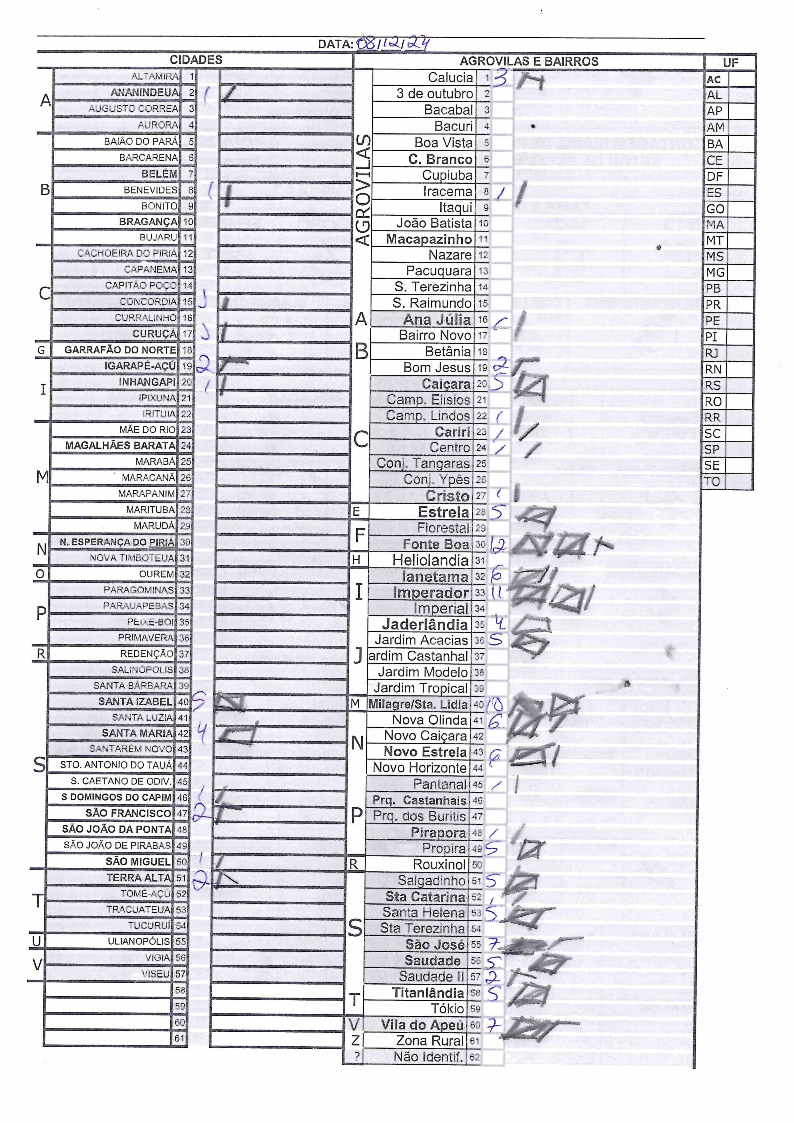 DATA: 08/12/24
CIDADES
A
ALTAMIRA 1
ANANINDEUA 2 1
AUGUSTO CORREA 3
AURORA 4
B
BAIÃO DO PARÁ 5
BARCARENA 6
BELÉM 7
BENEVIDES 8 1
BONITO 9
BRAGANÇA 10
BUJARU 11
C
CACHOEIRA DO PIRIA 12
CAPANEMA 13
CAPITÃO POÇO 14
CONCORDIA 15 1
CURRALINHO 16
CURUÇA 17 1
G
GARRAFÃO DO NORTE 18
I
IGARAPÉ-AÇÚ 19 2
INHANGAPI 20 1
IPIXUNA 21
IRITUIA 22
M
MÃE DO RIO 23
MAGALHÃES BARATA 24
MARABÁ 25
MARACANÃ 26
MARAPANIM 27
MARITUBA 28
MARUDÁ 29
N
N. ESPERANÇA DO PIRIÁ 30
NOVA TIMBOTEUA 31
O
OUREM 32
P
PARAGOMINAS 33
PARAUAPEBAS 34
PEIXE-BOI 35
PRIMAVERA 36
R
REDENÇÃO 37
S
SALINÓPOLIS 38
SANTA BÁRBARA 39
SANTA IZABEL 40 5
SANTA LUZIA 41
SANTA MARIA 42 4
SANTARÉM NOVO 43
STO. ANTONIO DO TAUÁ 44
S. CAETANO DE ODIV. 45
S DOMINGOS DO CAPIM 46 1
SÃO FRANCISCO 47 2
SÃO JOÃO DA PONTA 48
SÃO JOÃO DE PIRABAS 49
SÃO MIGUEL 50 1
T
TERRA ALTA 51 2
TOMÉ-AÇÚ 52
TRACUATEUA 53
TUCURUÍ 54
U
ULIANOPÓLIS 55
V
VIGIA 56
VISEU 57
58
59
60
61
AGROVILAS E BAIRROS
AGROVILAS
Calucia 1 3
3 de outubro 2
Bacabal 3
Bacuri 4
Boa Vista 5
C. Branco 6
Cupiuba 7
Iracema 8 1
Itaqui 9
João Batista 10
Macapazinho 11
Nazare 12
Pacuquara 13
S. Terezinha 14
S. Raimundo 15
A
Ana Júlia 16 1
B
Bairro Novo 17
Betânia 18
Bom Jesus 19 2
C
Caiçara 20 5
Camp. Elisios 21
Camp. Lindos 22 1
Cariri 23 1
Centro 24 1
Conj. Tangaras 25
Conj. Ypês 26
Cristo 27 1
E
Estrela 28 5
F
Florestal 29
Fonte Boa 30 12
H
Heliolandia 31
I
Ianetama 32 6
Imperador 33 11
Imperial 34
J
Jaderlândia 35 4
Jardim Acacias 36 5
ardim Castanhal 37
Jardim Modelo 38
Jardim Tropical 39
M
Milagre/Sta. Lidia 40 10
N
Nova Olinda 41 6
Novo Caiçara 42
Novo Estrela 43 6
Novo Horizonte 44
P
Pantanal 45 1
Prq. Castanhais 46
Prq. dos Buritis 47
Pirapora 48 1
Propira 49 5
R
Rouxinol 50
S
Salgadinho 51 5
Sta Catarina 52 1
Santa Helena 53 5
Sta Terezinha 54
São José 55 7
Saudade 56 5
Saudade II 57 2
T
Titanlândia 58 5
Tókio 59
V
Vila do Apeú 60 7
Z
Zona Rural 61
?
Não Identif. 62
UF
AC
AL
AP
AM
BA
CE
DF
ES
GO
MA
MT
MS
MG
PB
PR
PE
PI
RJ
RN
RS
RO
RR
SC
SP
SE
TO